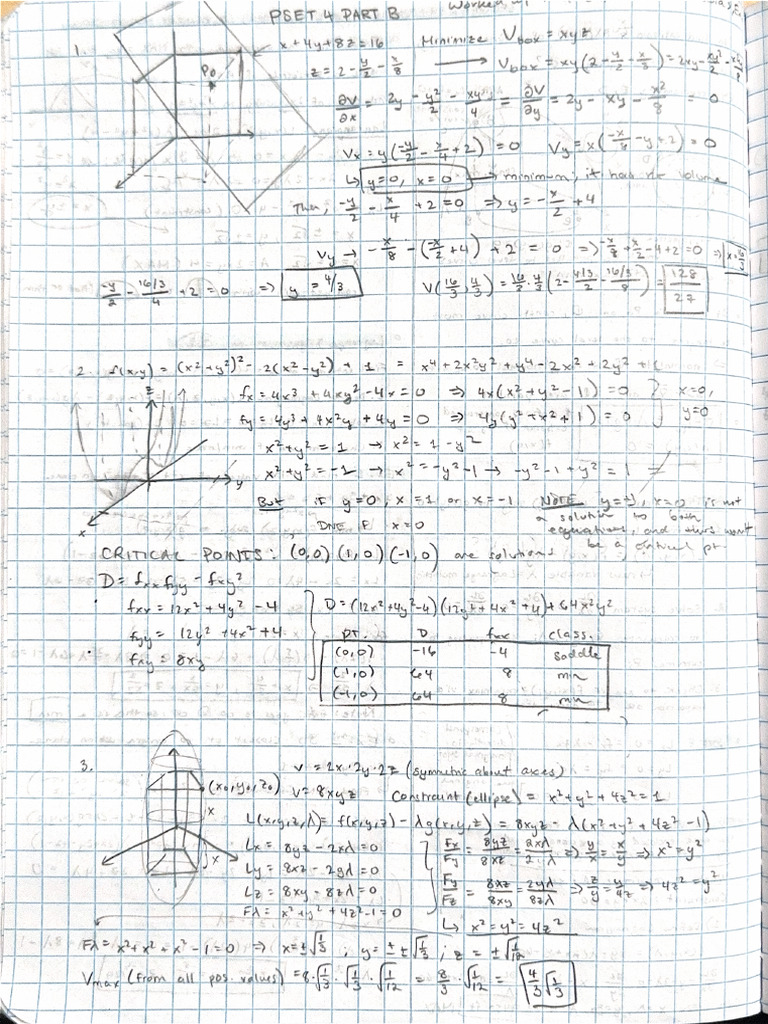 PSET 4 PART B
Worked w/
1.
x + 4y + 8z = 16
P₀
z = 2 - y/2 - x/8
Minimize V_box = xyz
V_box = xy(2 - y/2 - x/8) = 2xy - xy²/2 - x²y/8
∂V/∂x = 2y - y²/2 - xy/4 = ∂V/∂y = 2y - xy - x²/8 = 0
Vx = y(-y/2 - x/4 + 2) = 0 Vy = x(-x/8 - y + 2) = 0
↳ y=0, x=0 → minimum; it has no volume
Then, -y/2 - x/4 + 2 = 0 ⇒ y = -x/2 + 4
Vy → -x/8 - (-x/2 + 4) + 2 = 0 ⇒ -x/8 + x/2 - 4 + 2 = 0 ⇒ x = 16/3
-y/2 - 16/3/4 + 2 = 0 ⇒ y = 4/3
V(16/3, 4/3) = 16/3 · 4/3 (2 - 4/3/2 - 16/3/8) = 128/27
2. f(x,y) = (x²+y²)² - 2(x²-y²) + 1 = x⁴ + 2x²y² + y⁴ - 2x² + 2y² + 1
z
y
x
fx = 4x³ + 4xy² - 4x = 0 ⇒ 4x(x² + y² - 1) = 0 } x=0,
fy = 4y³ + 4x²y + 4y = 0 ⇒ 4y(y² + x² + 1) = 0 y=0
x² + y² = 1 → x² = 1 - y²
x² + y² = -1 → x² = -y² - 1 → -y² - 1 + y² = 1 ≠
But if y=0, x=1 or x=-1
DNE if x=0
NOTE y=±1, x=0 is not
a solution to both
equations, and thus won't
be a critical pt.
CRITICAL POINTS: (0,0) (1,0) (-1,0) are solutions
D = fxx fyy - fxy²
fxx = 12x² + 4y² - 4
fyy = 12y² + 4x² + 4
fxy = 8xy
D = (12x²+4y²-4)(12y²+4x²+4) + 64x²y²
pt. D fxx class.
(0,0) -16 -4 saddle
(1,0) 64 8 min
(-1,0) 64 8 min
3.
(x₀, y₀, z₀)
x
x
V = 2x · 2y · 2z (symmetric about axes)
V = 8xyz Constraint (ellipse) = x² + y² + 4z² = 1
L(x,y,z,λ) = f(x,y,z) - λg(x,y,z) = 8xyz - λ(x² + y² + 4z² - 1)
Lx = 8yz - 2xλ = 0
Ly = 8xz - 2yλ = 0
Lz = 8xy - 8zλ = 0
Fλ = x² + y² + 4z² - 1 = 0
Fx/Fy = 8yz/8xz = 2xλ/2yλ ⇒ y/x = x/y ⇒ x² = y²
Fy/Fz = 8xz/8xy = 2yλ/8zλ ⇒ z/y = y/4z ⇒ 4z² = y²
↳ x² = y² = 4z²
Fλ = x² + x² + x² - 1 = 0 ⇒ x = ±√1/3 ; y = ±√1/3 ; z = ±√1/12
Vmax (from all pos. values) = 8·√1/3·√1/3·√1/12 = 8/3 · √1/12 = 4/3 √1/3